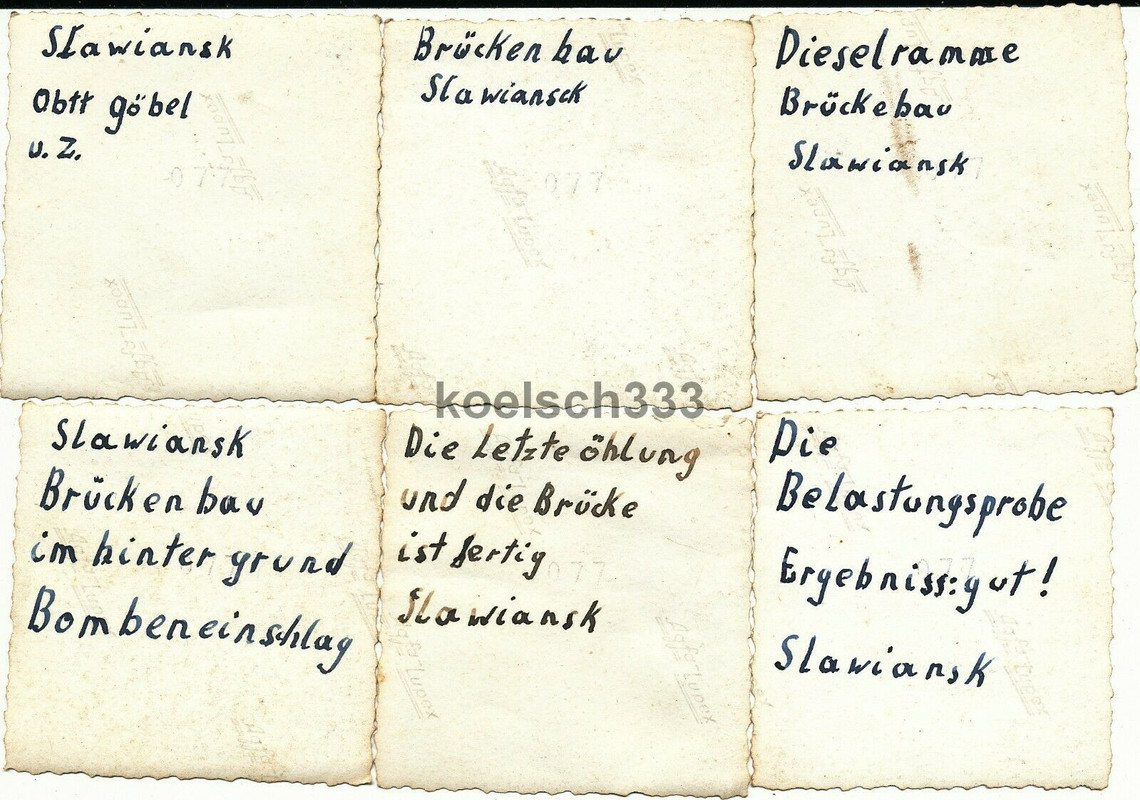 Slawiansk
Obtt göbel
u. Z.
Brückenbau
Slawiansck
Dieselramme
Brückebau
Slawiansk
Slawiansk
Brückenbau
im hintergrund
Bombeneinschlag
Die Letzte öhlung
und die Brücke
ist fertig
Slawiansk
Die
Belastungsprobe
Ergebniss: gut!
Slawiansk
koelsch333
077
077
077
Agfa Lupex
Agfa Lupex
Agfa Lupex
Agfa Lupex
Agfa Lupex